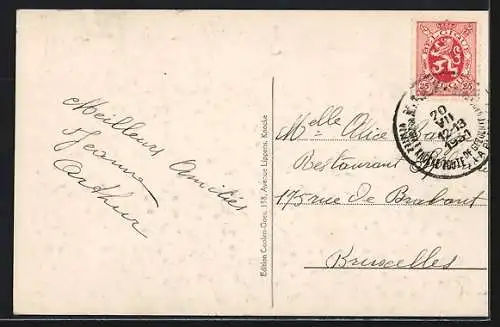 Meilleurs Amitiés
Jeanne
Arthur
Edition Cordon-Goes, 158, Avenue Lippens, Knocke
BELGIQUE
25 25
20
VII
12-13
1931
Melle Alice
Restaurant
175 rue de Brabant
Bruxelles